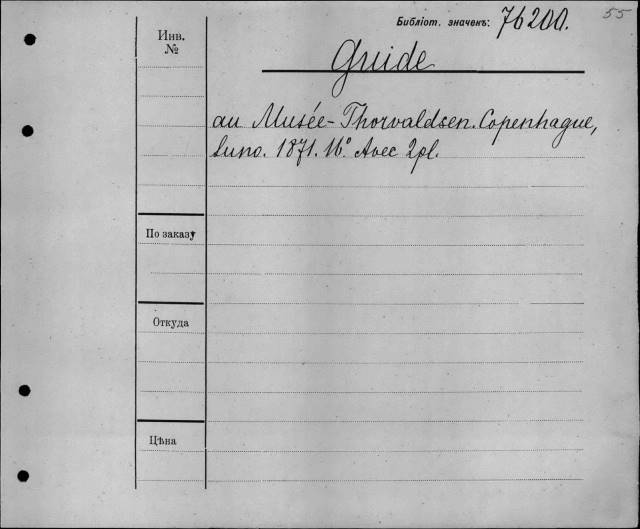 55
Библіот. значекъ: 76200.
Инв. №
Guide
au Musée-Thorvaldsen. Copenhague,
Luno. 1871. 16° Avec 2pl.
По заказу
Откуда
Цѣна